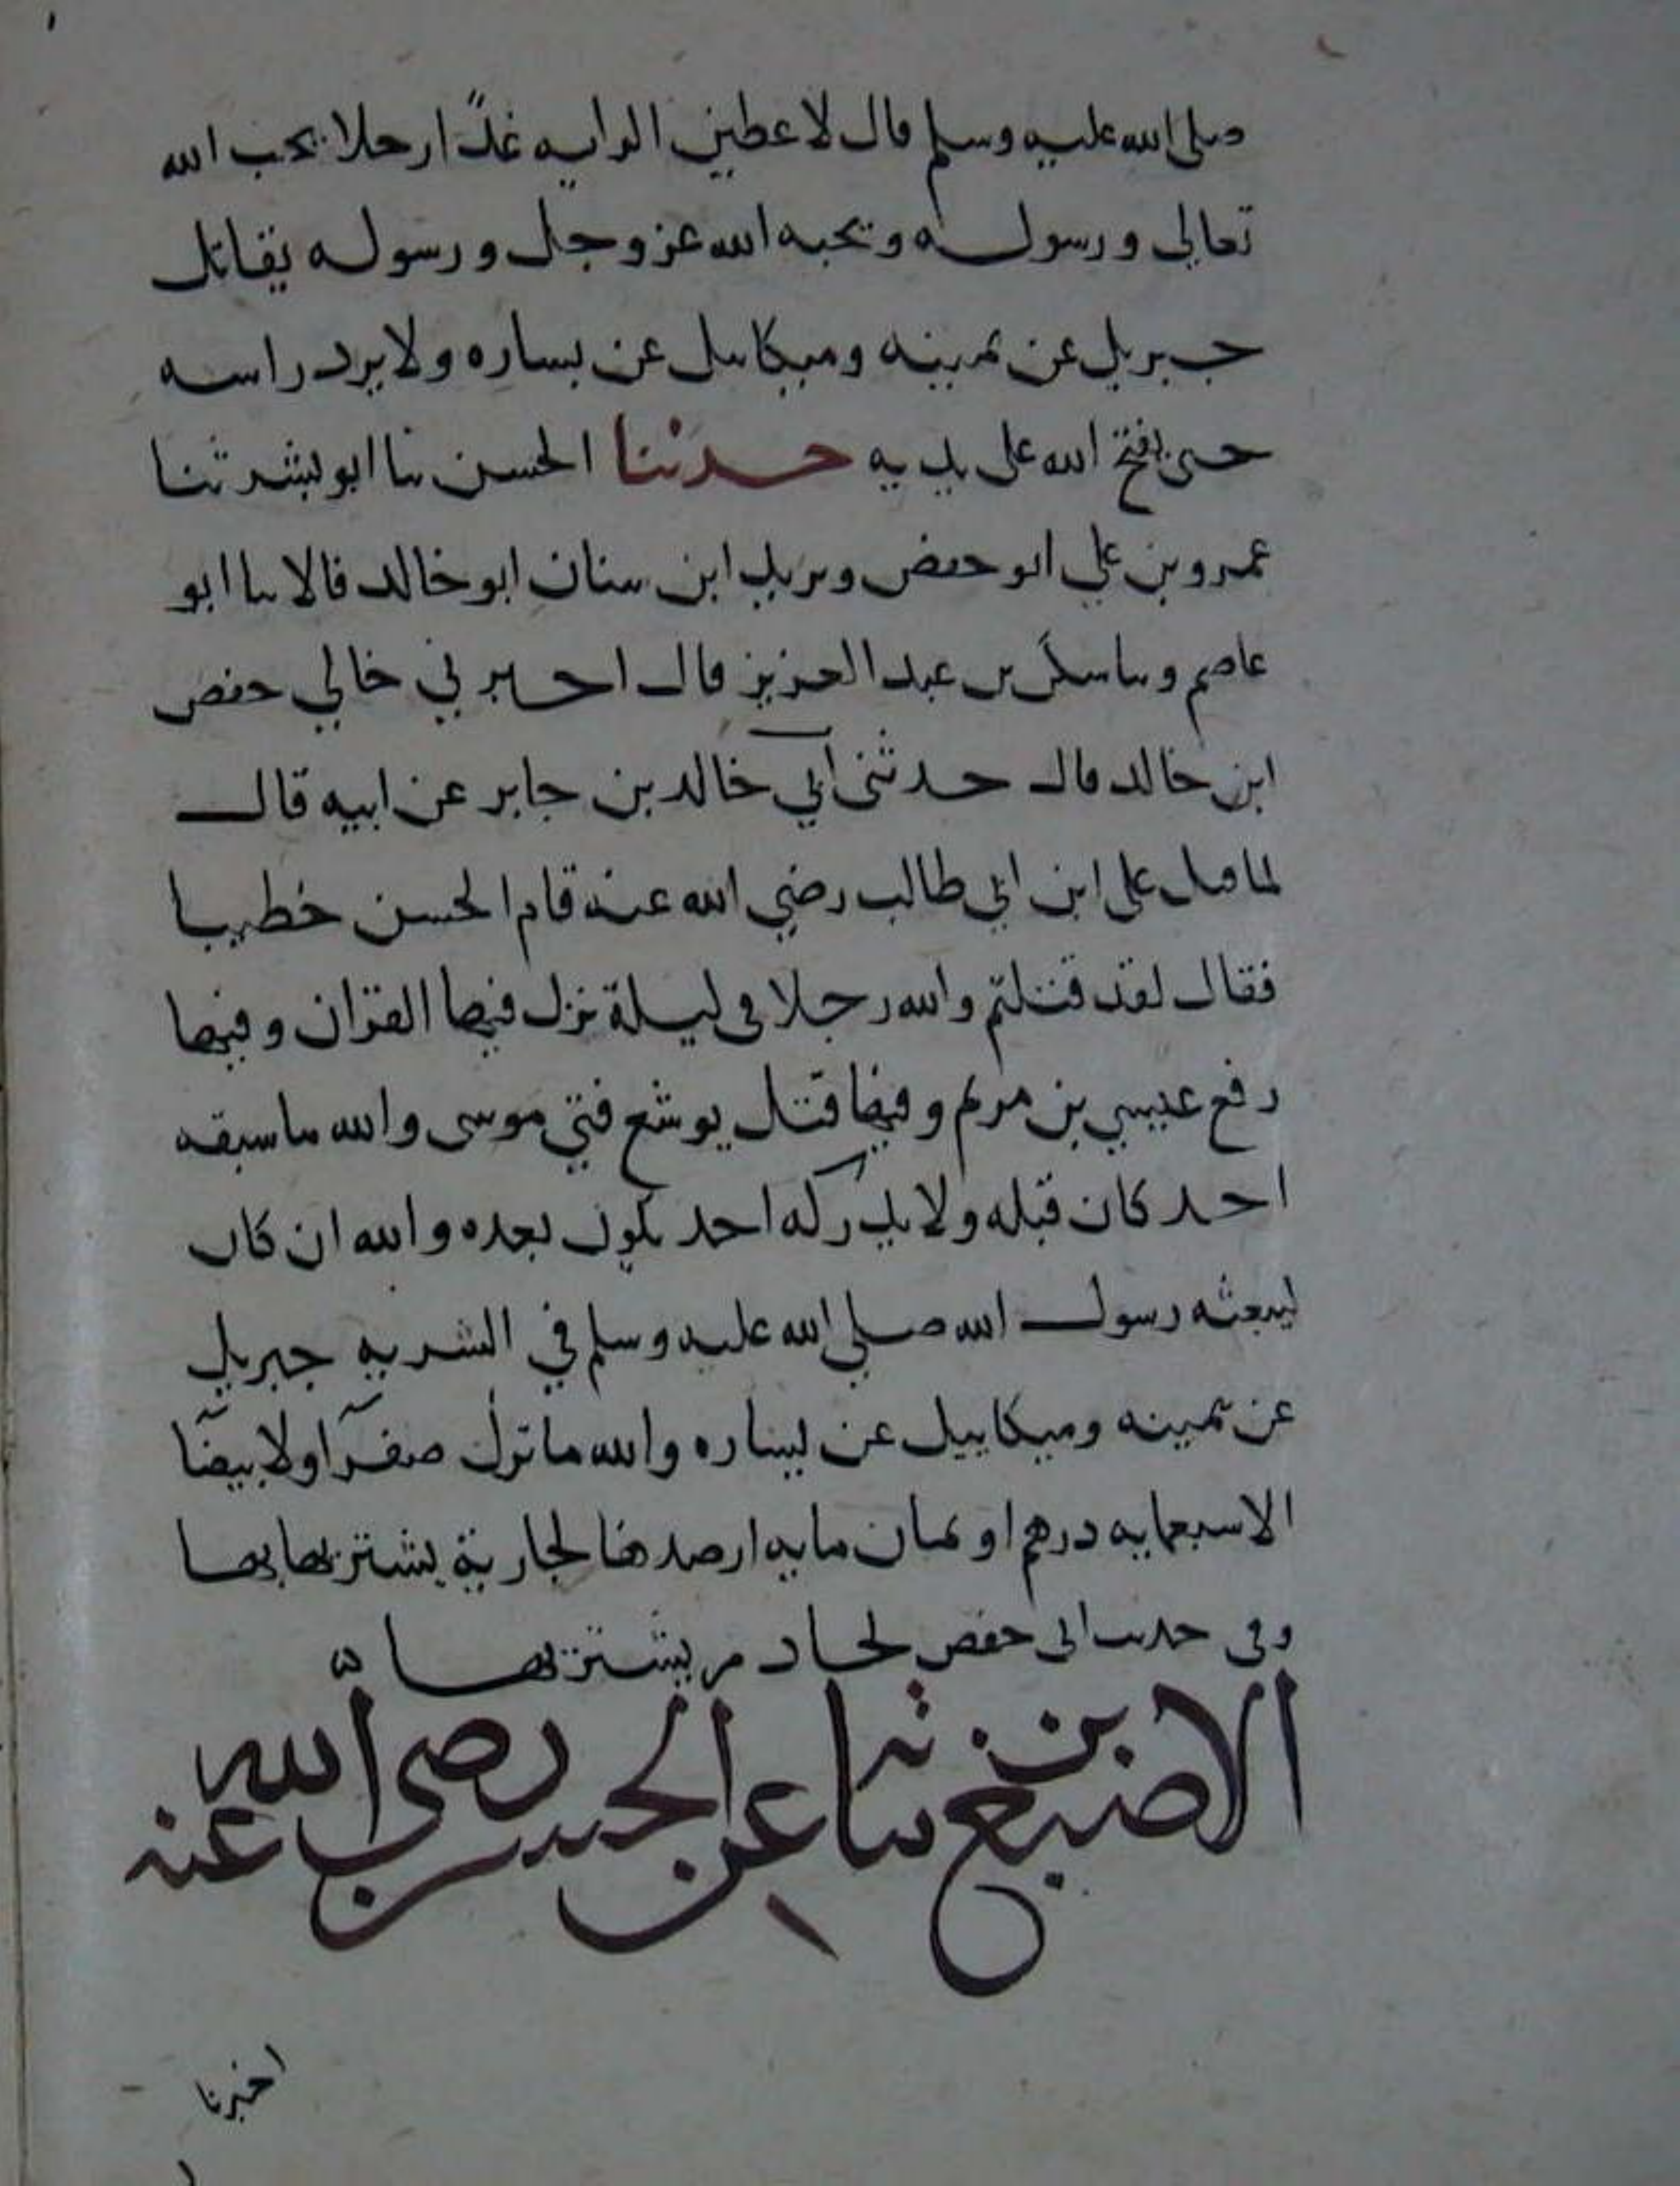 صلى الله عليه وسلم قال لاعطين الرايه غدًا رجلا يحب الله
تعالى ورسوله ويحبه الله عز وجل ورسوله يقاتل
جبريل عن يمينه وميكاييل عن يساره ولا يرد راسه
حتى يفتح الله على يديه حدثنا الحسن ثنا ابو بشر ثنا
عمرو بن علي ابو حفص ويزيد ابن سنان ابو خالد قالا ثنا ابو
عاصم وثنا سكن بن عبد العزيز قال اخبرني خالي حفص
ابن خالد قال حدثني ابي خالد بن جابر عن ابيه قال
لما قتل على ابن ابي طالب رضي الله عنه قام الحسن خطيبا
فقال لقد قتلتم والله رجلا في ليلة نزل فيها القران وفيها
رفع عيسي بن مريم وفيها قتل يوشع فتى موسى والله ما سبقه
احد كان قبله ولا يدركه احد يكون بعده والله ان كان
ليبعثه رسول الله صلي الله عليه وسلم في السريه جبريل
عن يمينه وميكاييل عن يساره والله ما ترك صفرآ ولا بيضآ
الا سبعمايه درهم او ثمان مايه ارصدها لجارية يشتريها بها
وفي حديث ابى حفص لخادم يشتريها
الاصبغ بن نباتة عن الحسن رضى الله عنه
اخبرنا